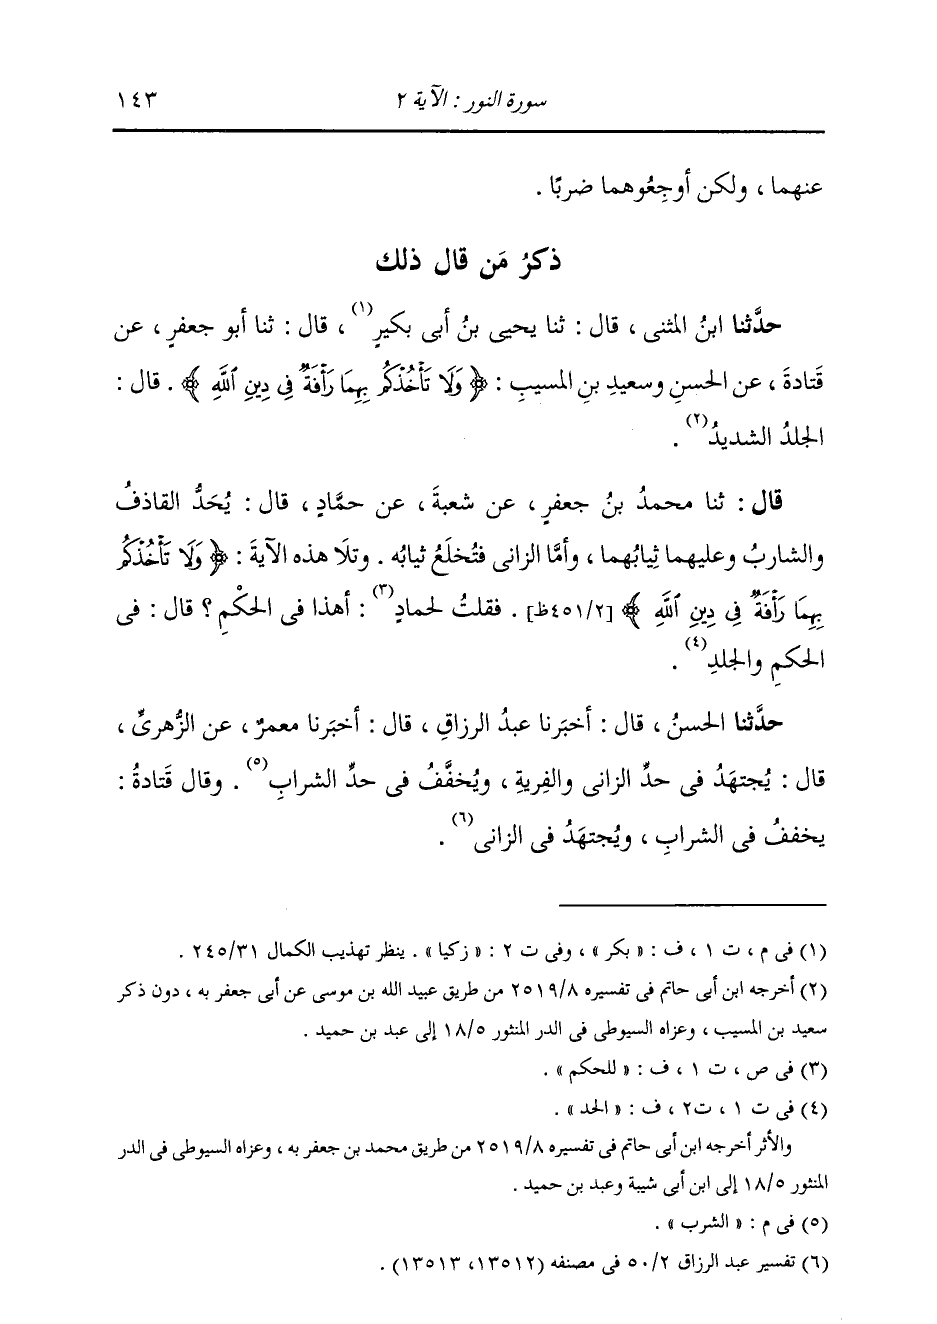 سورة النور : الآية ٢ ١٤٣
عنهما ، ولكن أوجِعُوهما ضربًا .
ذكرُ مَن قال ذلك
حدَّثنا ابنُ المثنى ، قال : ثنا يحيى بنُ أبى بكيرٍ(١) ، قال : ثنا أبو جعفرٍ ، عن
قَتادةَ ، عن الحسنِ وسعيدِ بنِ المسيبِ : ﴿ وَلَا تَأْخُذْكُم بِهِمَا رَأْفَةٌ فِي دِينِ ٱللَّهِ ﴾ . قال :
الجلدُ الشديدُ(٢) .
قال : ثنا محمدُ بنُ جعفرٍ ، عن شعبةَ ، عن حمَّادٍ ، قال : يُحَدُّ القاذفُ
والشاربُ وعليهما ثِيابُهما ، وأمَّا الزانى فتُخلَعُ ثيابُه . وتلَا هذه الآيةَ : ﴿ وَلَا تَأْخُذْكُم
بِهِمَا رَأْفَةٌ فِي دِينِ ٱللَّهِ ﴾ [٤٥١/٢ظ] . فقلتُ لحمادٍ(٣) : أهذا فى الحكْمِ ؟ قال : فى
الحكمِ والجلدِ(٤) .
حدَّثنا الحسنُ ، قال : أخبَرنا عبدُ الرزاقِ ، قال : أخبَرنا معمرٌ ، عن الزُّهرىِّ ،
قال : يُجتهَدُ فى حدِّ الزانى والفِريةِ ، ويُخفَّفُ فى حدِّ الشرابِ(٥) . وقال قَتادةُ :
يخففُ فى الشرابِ ، ويُجتهَدُ فى الزانى(٦) .
(١) فى م ، ت ١ ، ف : « بكر » ، وفى ت ٢ : « زكيا » . ينظر تهذيب الكمال ٢٤٥/٣١ .
(٢) أخرجه ابن أبى حاتم فى تفسيره ٢٥١٩/٨ من طريق عبيد الله بن موسى عن أبى جعفر به ، دون ذكر
سعيد بن المسيب ، وعزاه السيوطى فى الدر المنثور ١٨/٥ إلى عبد بن حميد .
(٣) فى ص ، ت ١ ، ف : « للحكم » .
(٤) فى ت ١ ، ت٢ ، ف : « الحد » .
والأثر أخرجه ابن أبى حاتم فى تفسيره ٢٥١٩/٨ من طريق محمد بن جعفر به ، وعزاه السيوطى فى الدر
المنثور ١٨/٥ إلى ابن أبى شيبة وعبد بن حميد .
(٥) فى م : « الشرب » .
(٦) تفسير عبد الرزاق ٥٠/٢ فى مصنفه (١٣٥١٢، ١٣٥١٣) .